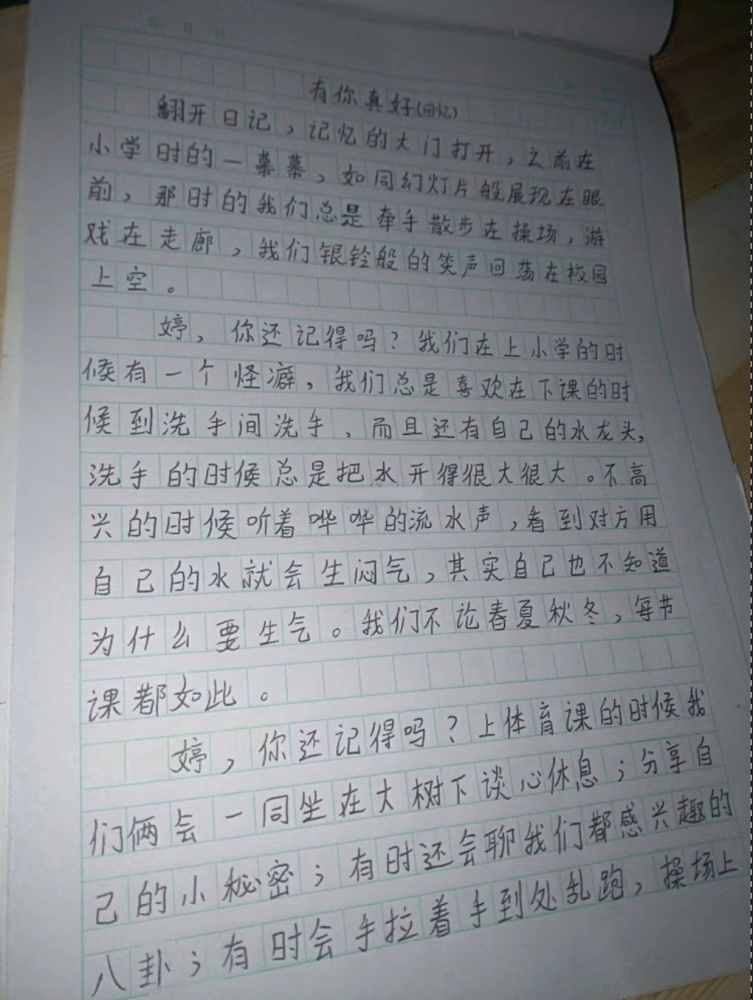 有你真好(回忆)
翻开日记，记忆的大门打开，之前在
小学时的一幕幕，如同幻灯片般展现在眼
前，那时的我们总是牵手散步在操场，游
戏在走廊，我们银铃般的笑声回荡在校园
上空。
婷，你还记得吗？我们在上小学的时
候有一个怪癖，我们总是喜欢在下课的时
候到洗手间洗手、而且还有自己的水龙头,
洗手的时候总是把水开得很大很大。不高
兴的时候听着哗哗的流水声，看到对方用
自己的水就会生闷气，其实自己也不知道
为什么要生气。我们不论春夏秋冬，每节
课都如此。
婷，你还记得吗？上体育课的时候我
们俩会一同坐在大树下谈心休息；分享自
己的小秘密；有时还会聊我们都感兴趣的
八卦；有时会手拉着手到处乱跑，操场上